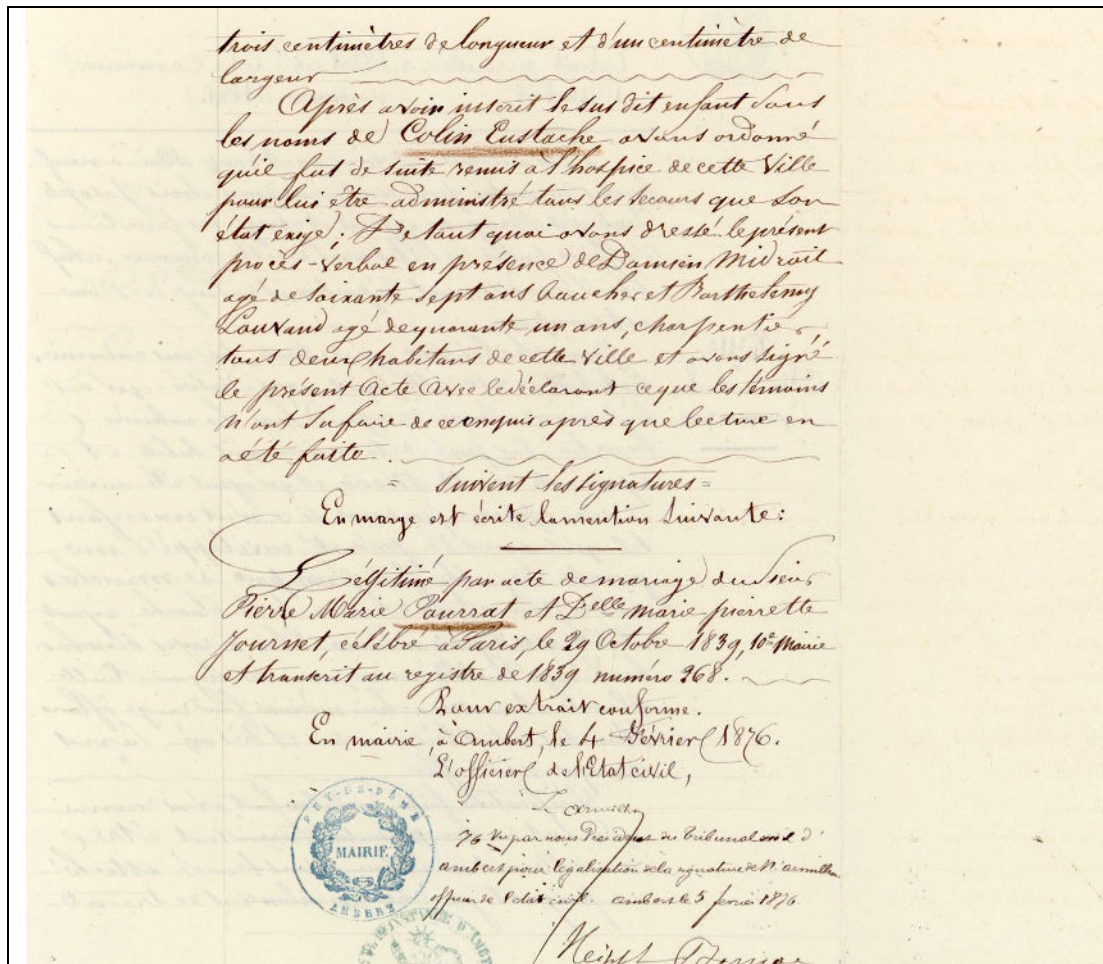 trois centimètres de longueur et d'un centimètre de
largeur
Après avoir inscrit le sus dit enfant sous
les noms de Colin Eustache avons ordonné
qu'il fut de suite remis à l'hospice de cette Ville
pour lui être administré tous les secours que son
état exige; De tout quoi avons dressé le présent
procès-verbal en présence de Damien Midroit
agé de soixante sept ans boucher et Barthelemy
agé de quarante un ans, charpentier
tous deux habitans de cette Ville et avons signé
le présent Acte avec le déclarant ce que les témoins
n'ont su faire de ce enquis après que lecture en
a été faite.
= suivent les signatures =
En marge est écrite la mention suivante:
Légitimé par acte de mariage du Sieur
Pierre Marie Pourrat et Delle marie pierrette
Journet, célébré à Paris, le 29 Octobre 1839, 10e Mairie
et transcrit au registre de 1839 numéro 268.
Pour extrait conforme.
En mairie, à Ambert, le 4 Février 1876.
L'officier de l'Etat civil,
76 Vu par nous Président du Tribunal civil d'
ambert pour légalisation de la signature de Mr
officier de l'état civil. ambert le 5 fevrier 1876
PUY-DE-DÔME
MAIRIE
AMBERT